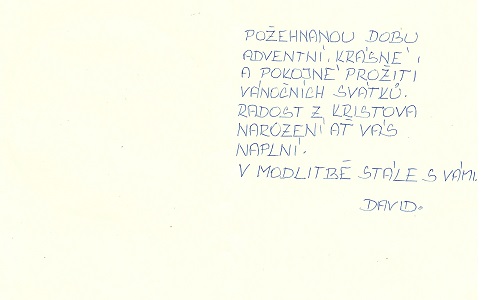 POŽEHNANOU DOBU
ADVENTNÍ, KRÁSNÉ
A POKOJNÉ PROŽITÍ
VÁNOČNÍCH SVÁTKŮ.
RADOST Z KRISTOVA
NAROZENÍ AŤ VÁS
NAPLNÍ.
V MODLITBĚ STÁLE S VÁMI
DAVID.